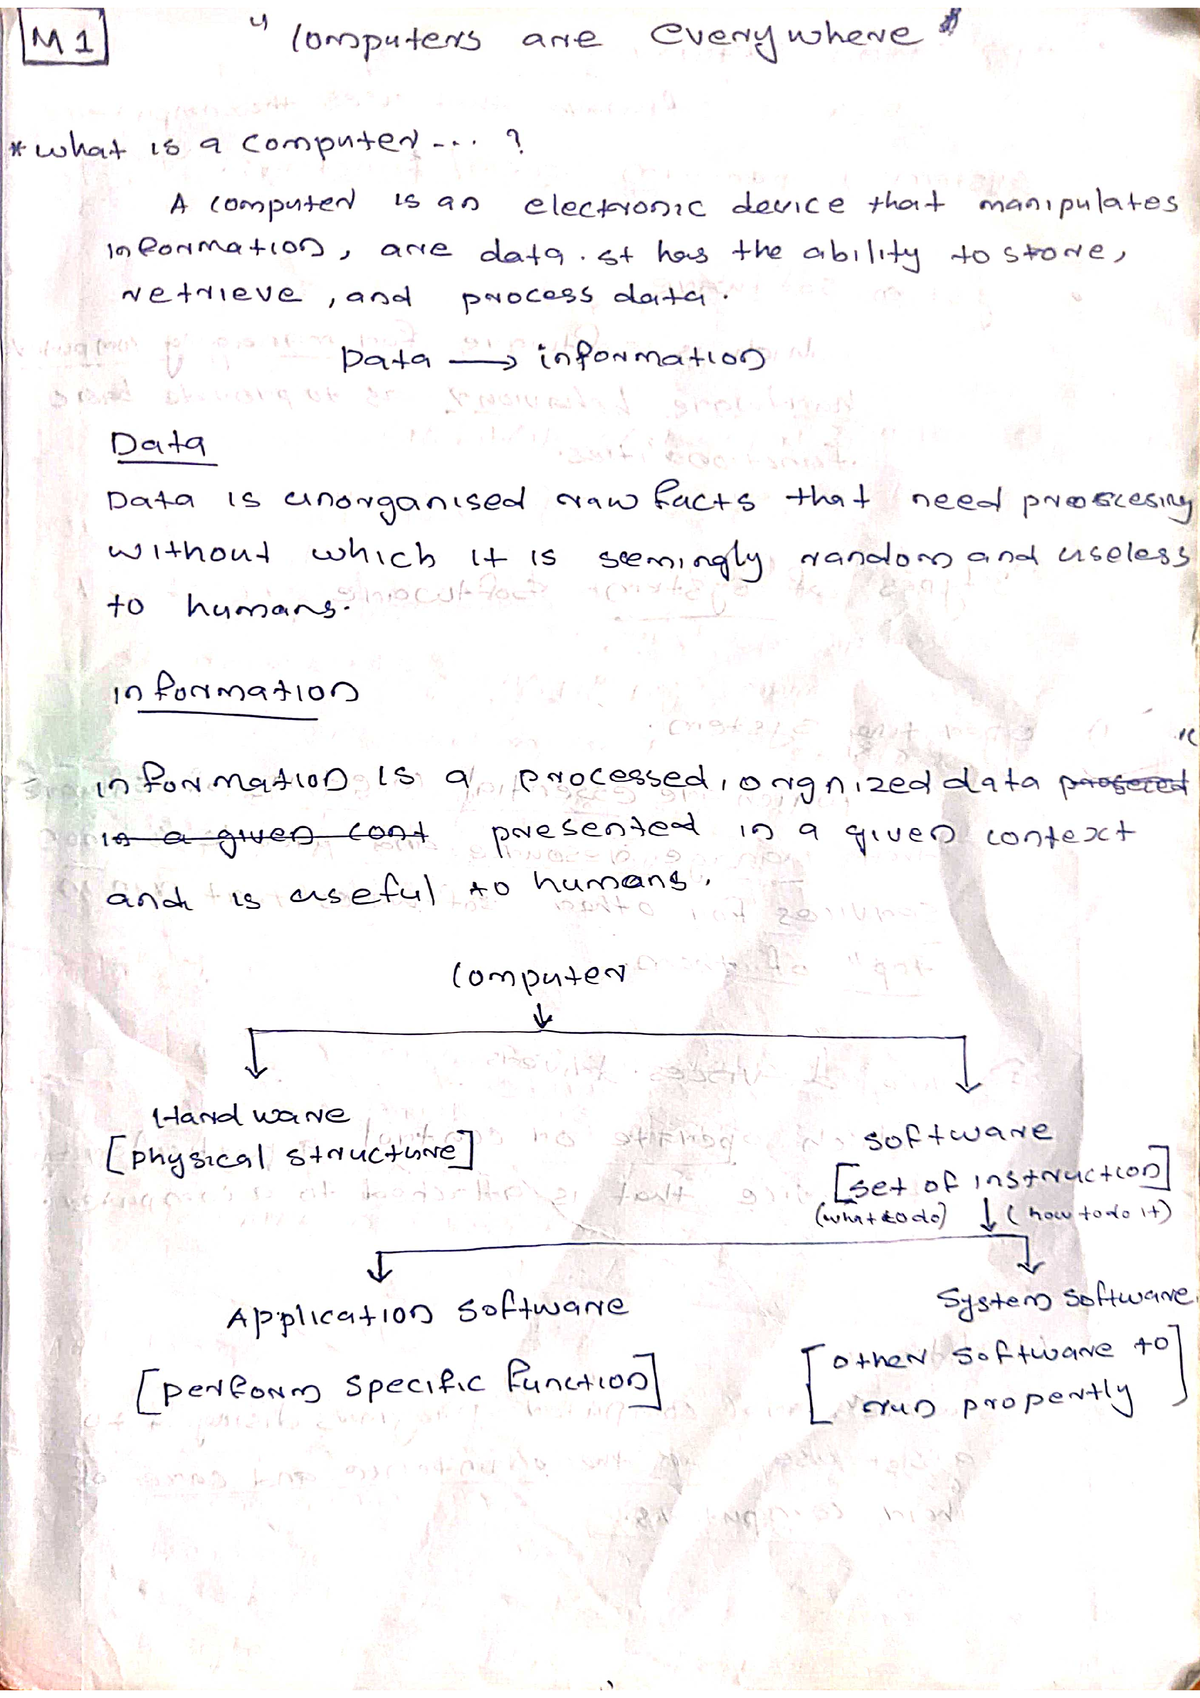 M1
" Computers are everywhere "
* what is a computer --.. ?
A computer is an electronic device that manipulates
information, are data. It has the ability to store,
retrieve, and process data.
Data → information
Data
Data is unorganised raw facts that need proscesing
without which it is seemingly random and useless
to humans.
information
information is a processed, orgnized data prosected
in a given cont presented in a given context
and is useful to humans.
Computer
Hard ware
[physical structure]
software
[set of instruction]
(what to do) ↓ (how to do it)
Application software
System software
[perform specific function]
[other software to
run propertly]